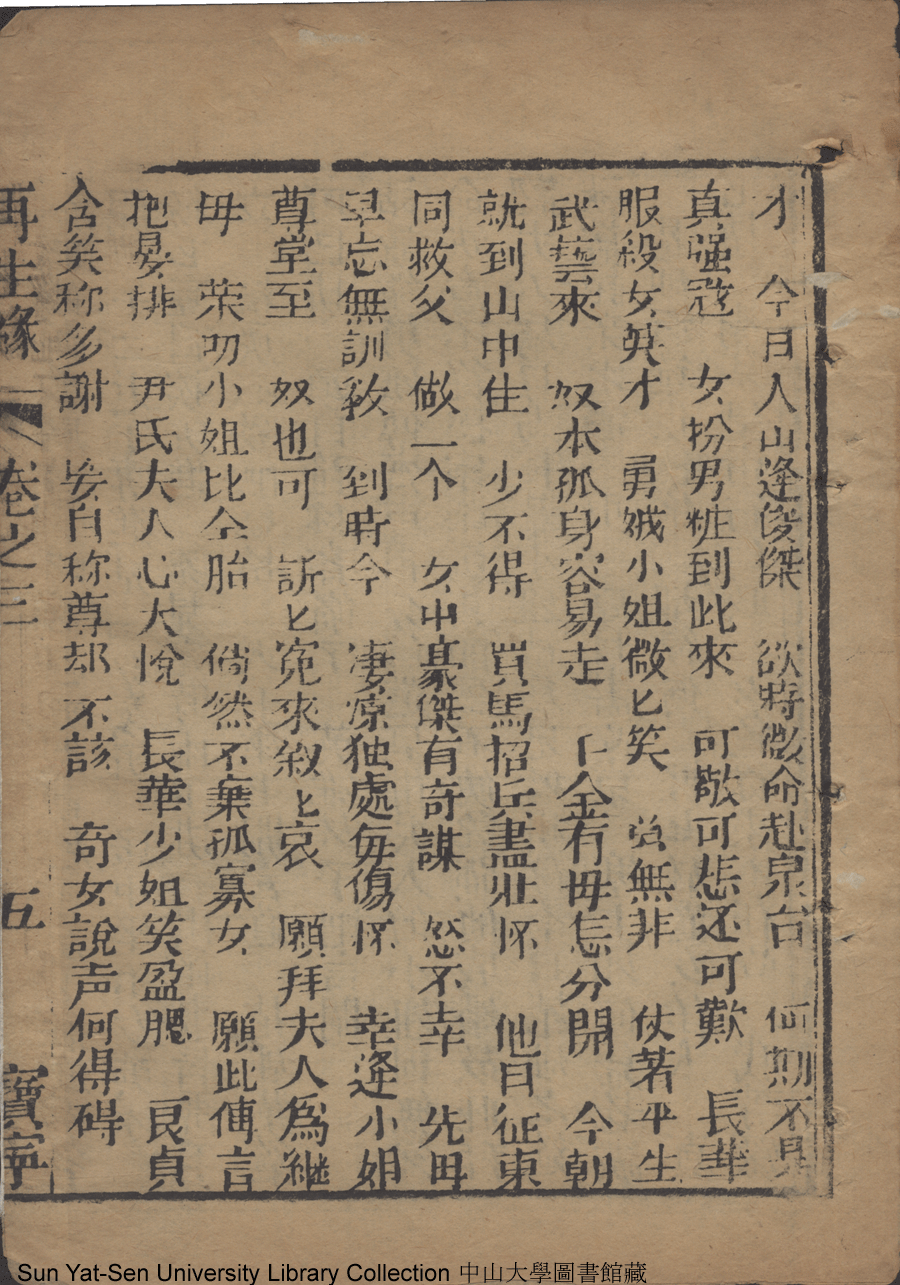 才　今日入山逢俊傑　欲時微命赴泉台　何期不是
真强寇　女扮男粧到此來　可敬可悲还可歎　長華
服殺女英才　勇娥小姐微匕笑　　無非　仗著平生
武藝來　奴本孤身容易走　　金有毋怎分開　今朝
就到山中住　少不得　買馬招兵盡壯怀　他日征東
同救父　做一个　女中豪傑有奇謀　怒不幸　先毋
早忘無訓教　到時今　凄凉独處每傷怀　幸逢小姐
尊堂至　奴也可　訴匕寃來叙匕哀　願拜夫人爲継
毋　荣叨小姐比仝胎　倘然不棄孤寡女　願此傳言
把晏排　尹氏夫人心大悅　長華少姐笑盈腮　良貞
含笑称多謝　妄自称尊却不該　奇女說声何得碍
再生緣　卷之三　五　寶寧
Sun Yat-Sen University Library Collection 中山大學圖書館藏